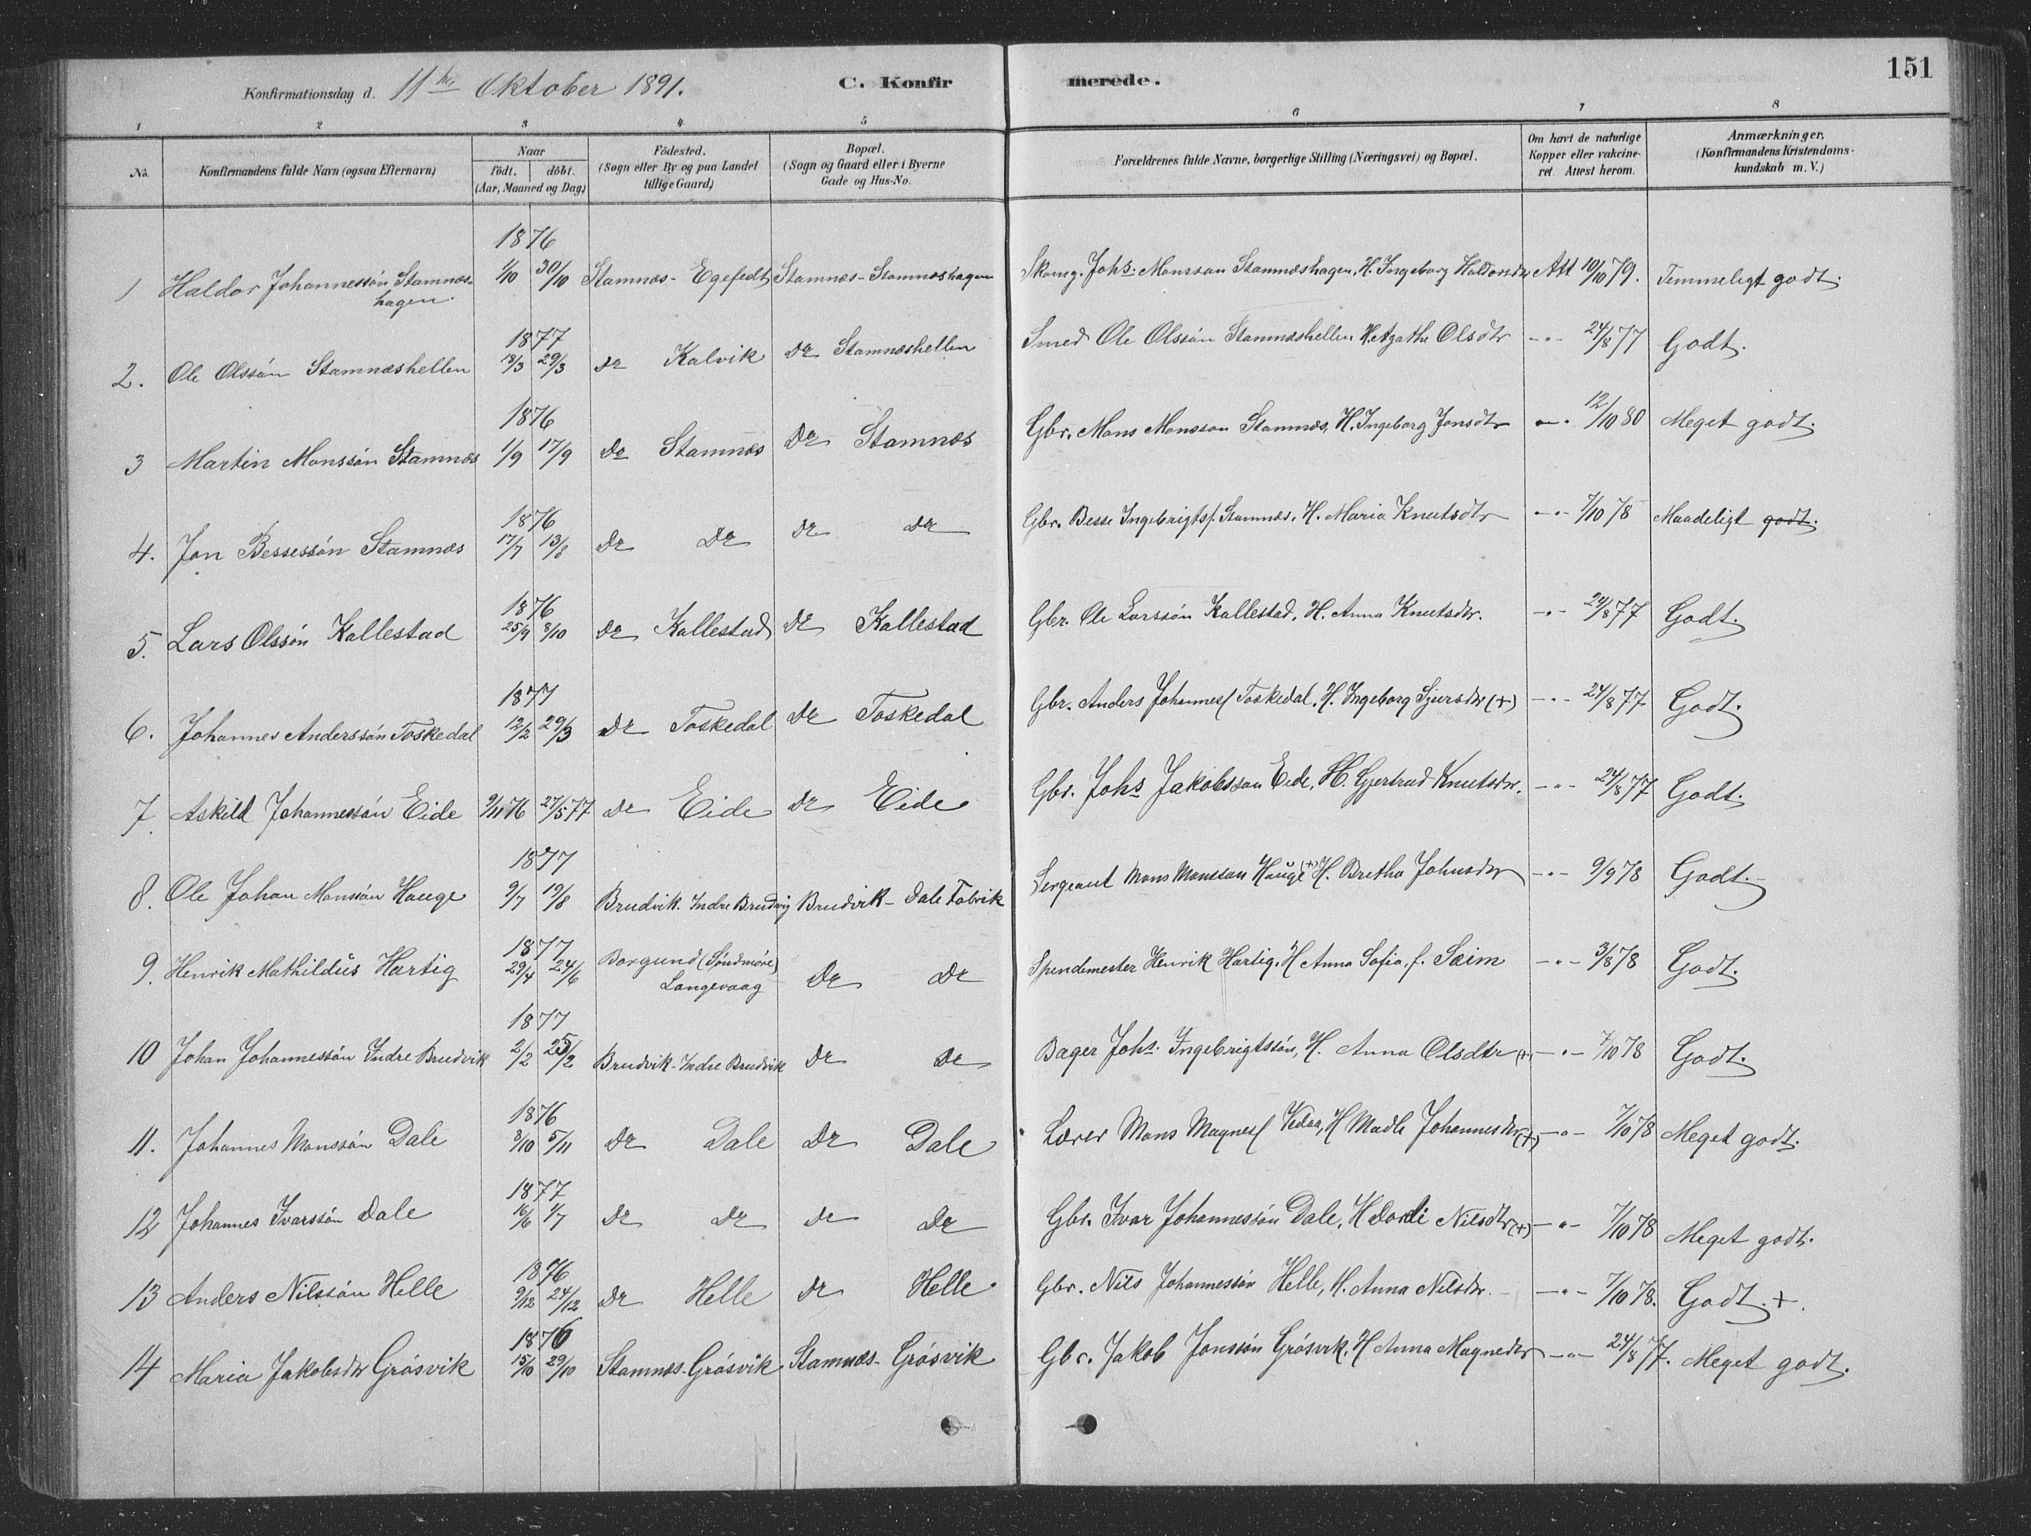 151
Konfirmationsdag d. 11te Oktober 1891. C. Konfirmerede.
1 2 3 4 5 6 7 8
No. Konfirmandens fulde Navn (ogsaa Efternavn) Naar født. døbt. (Aar, Maaned og Dag) Fødested. (Sogn eller By og paa Landet tillige Gaard) Bopæl. (Sogn og Gaard eller i Byerne Gade og Hus-No. Forældrenes fulde Navne, borgerlige Stilling (Næringsvei) og Bopæl. Om havt de naturlige Kopper eller vakcineret. Attest herom. Anmærkninger. (Konfirmandens Kristendomskundskab m. V.)
1876
1 Haldor Johannessøn Stamnæshagen. 1/10 30/10 Stamnæs - Egefedt Stamnæs - Stamneshagen Johs. Monsson Stamnæshagen, H. Ingeborg Haldorsdtr Att 10/10 79. Temmeligt godt.
1877
2. Ole Olssøn Stamnæshellen 18/3 29/3 do Kalvik do Stamnæshellen Smed Ole Olssøn Stamnæshellen H. Agathe Olsdtr -"- 24/8 77 Godt.
1876
3 Martin Monssøn Stamnæs 1/9 17/9 do Stamnæs do Stamnæs Gbr. Mons Monsson Stamnæs, H. Ingeborg Jonsdtr -"- 12/10 80 Meget godt.
1876
4. Jon Bessessøn Stamnæs 17/7 13/8 do do do do Gbr. Besse Ingebrigts. Stamnæs, H. Maria Knutsdtr -"- 7/10 78 Maadeligt godt.
1876
5. Lars Olssøn Kallestad 25/9 8/10 do Kallestad do Kallestad Gbr. Ole Larssøn Kallestad, H. Anna Knutsdtr. -"- 24/8 77 Godt.
1877
6. Johannes Anderssøn Toskedal 12/2 29/3 do Toskedal do Toskedal Gbr. Anders Johannes. Toskedal, H. Ingeborg Sjursdtr (+) -"- 24/8 77 Godt.
7. Askild Johannessøn Eide 9/11 76 27/5 77 do Eide do Eide Gbr. Johs Jakobsson Eide, H. Gjertrud Knutsdtr. -"- 24/8 77 Godt.
1877
8. Ole Johan Monssøn Hauge 9/7 19/8 Brudvik. Indre Brudvig Brudvik - Dale Fabrik Sergeant Mons Monsson Hauge (+) H. Bretha Johnsdtr -"- 9/9 78 Godt.
1877
9. Henrik Mathildus Hartig 29/4 24/6 Borgund (Søndmøre) Langevaag do do Spindemester Henrik Hartig, H Anna Sofia f. Sæim -"- 3/8 78 Godt.
1877
10 Johan Johannessøn Indre Brudvik 2/2 25/2 Brudvik - Indre Brudvik do do Bager Johs. Ingebrigtssøn, H. Anna Olsdtr (+) -"- 7/10 78 Godt.
1876
11. Johannes Monssøn Dale 8/10 5/11 do Dale do Dale Lærer Mons Magnes. Vedaa, H Madle Johannesdtr (+) -"- 7/10 78 Meget godt.
1877
12 Johannes Ivarssøn Dale 16/6 1/7 do do do do Gbr. Ivar Johannessøn Dale, H Dordi Nilsdtr (+) -"- 7/10 78 Meget godt.
1876
13 Anders Nilssøn Helle 9/12 24/12 do Helle do Helle Gbr. Nils Johannessøn Helle, H. Anna Nilsdtr. -"- 7/10 78. Godt. +.
1876
14 Maria Jakobsdtr Grøsvik 15/10 29/10 Stamnæs - Grøsvik Stamnæs - Grøsvik Gbr. Jakob Jonssøn Grøsvik, H Anna Magnedtr -"- 24/8 77. Meget godt.